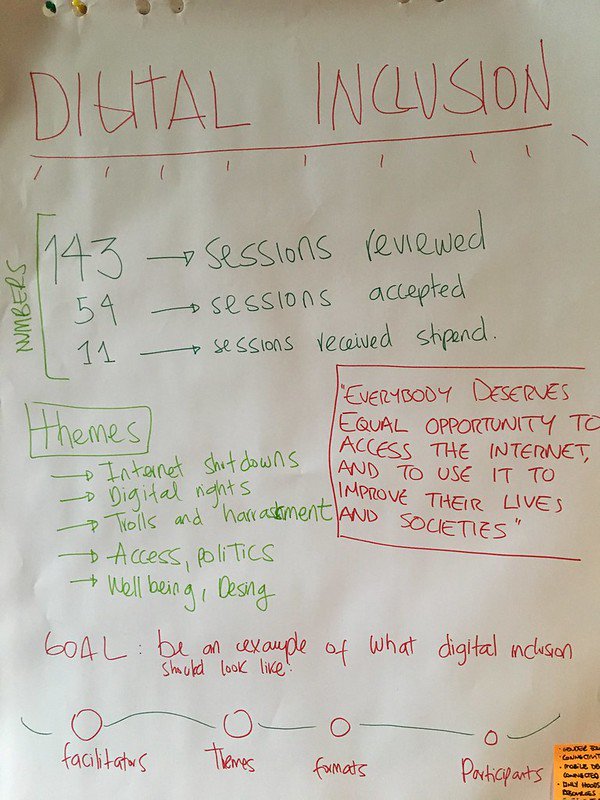 DIGITAL INCLUSION
NUMBERS
143 → sessions reviewed
54 → sessions accepted
11 → sessions received stipend.
themes
→ Internet shutdowns
→ Digital rights
→ Trolls and harrastment
→ Access, politics
→ Well being, Desing
"EVERYBODY DESERVES
EQUAL OPPORTUNITY TO
ACCESS THE INTERNET,
AND TO USE IT TO
IMPROVE THEIR LIVES
AND SOCIETIES"
GOAL: be an example of what digital inclusion
should look like.
facilitators Themes formats Participants